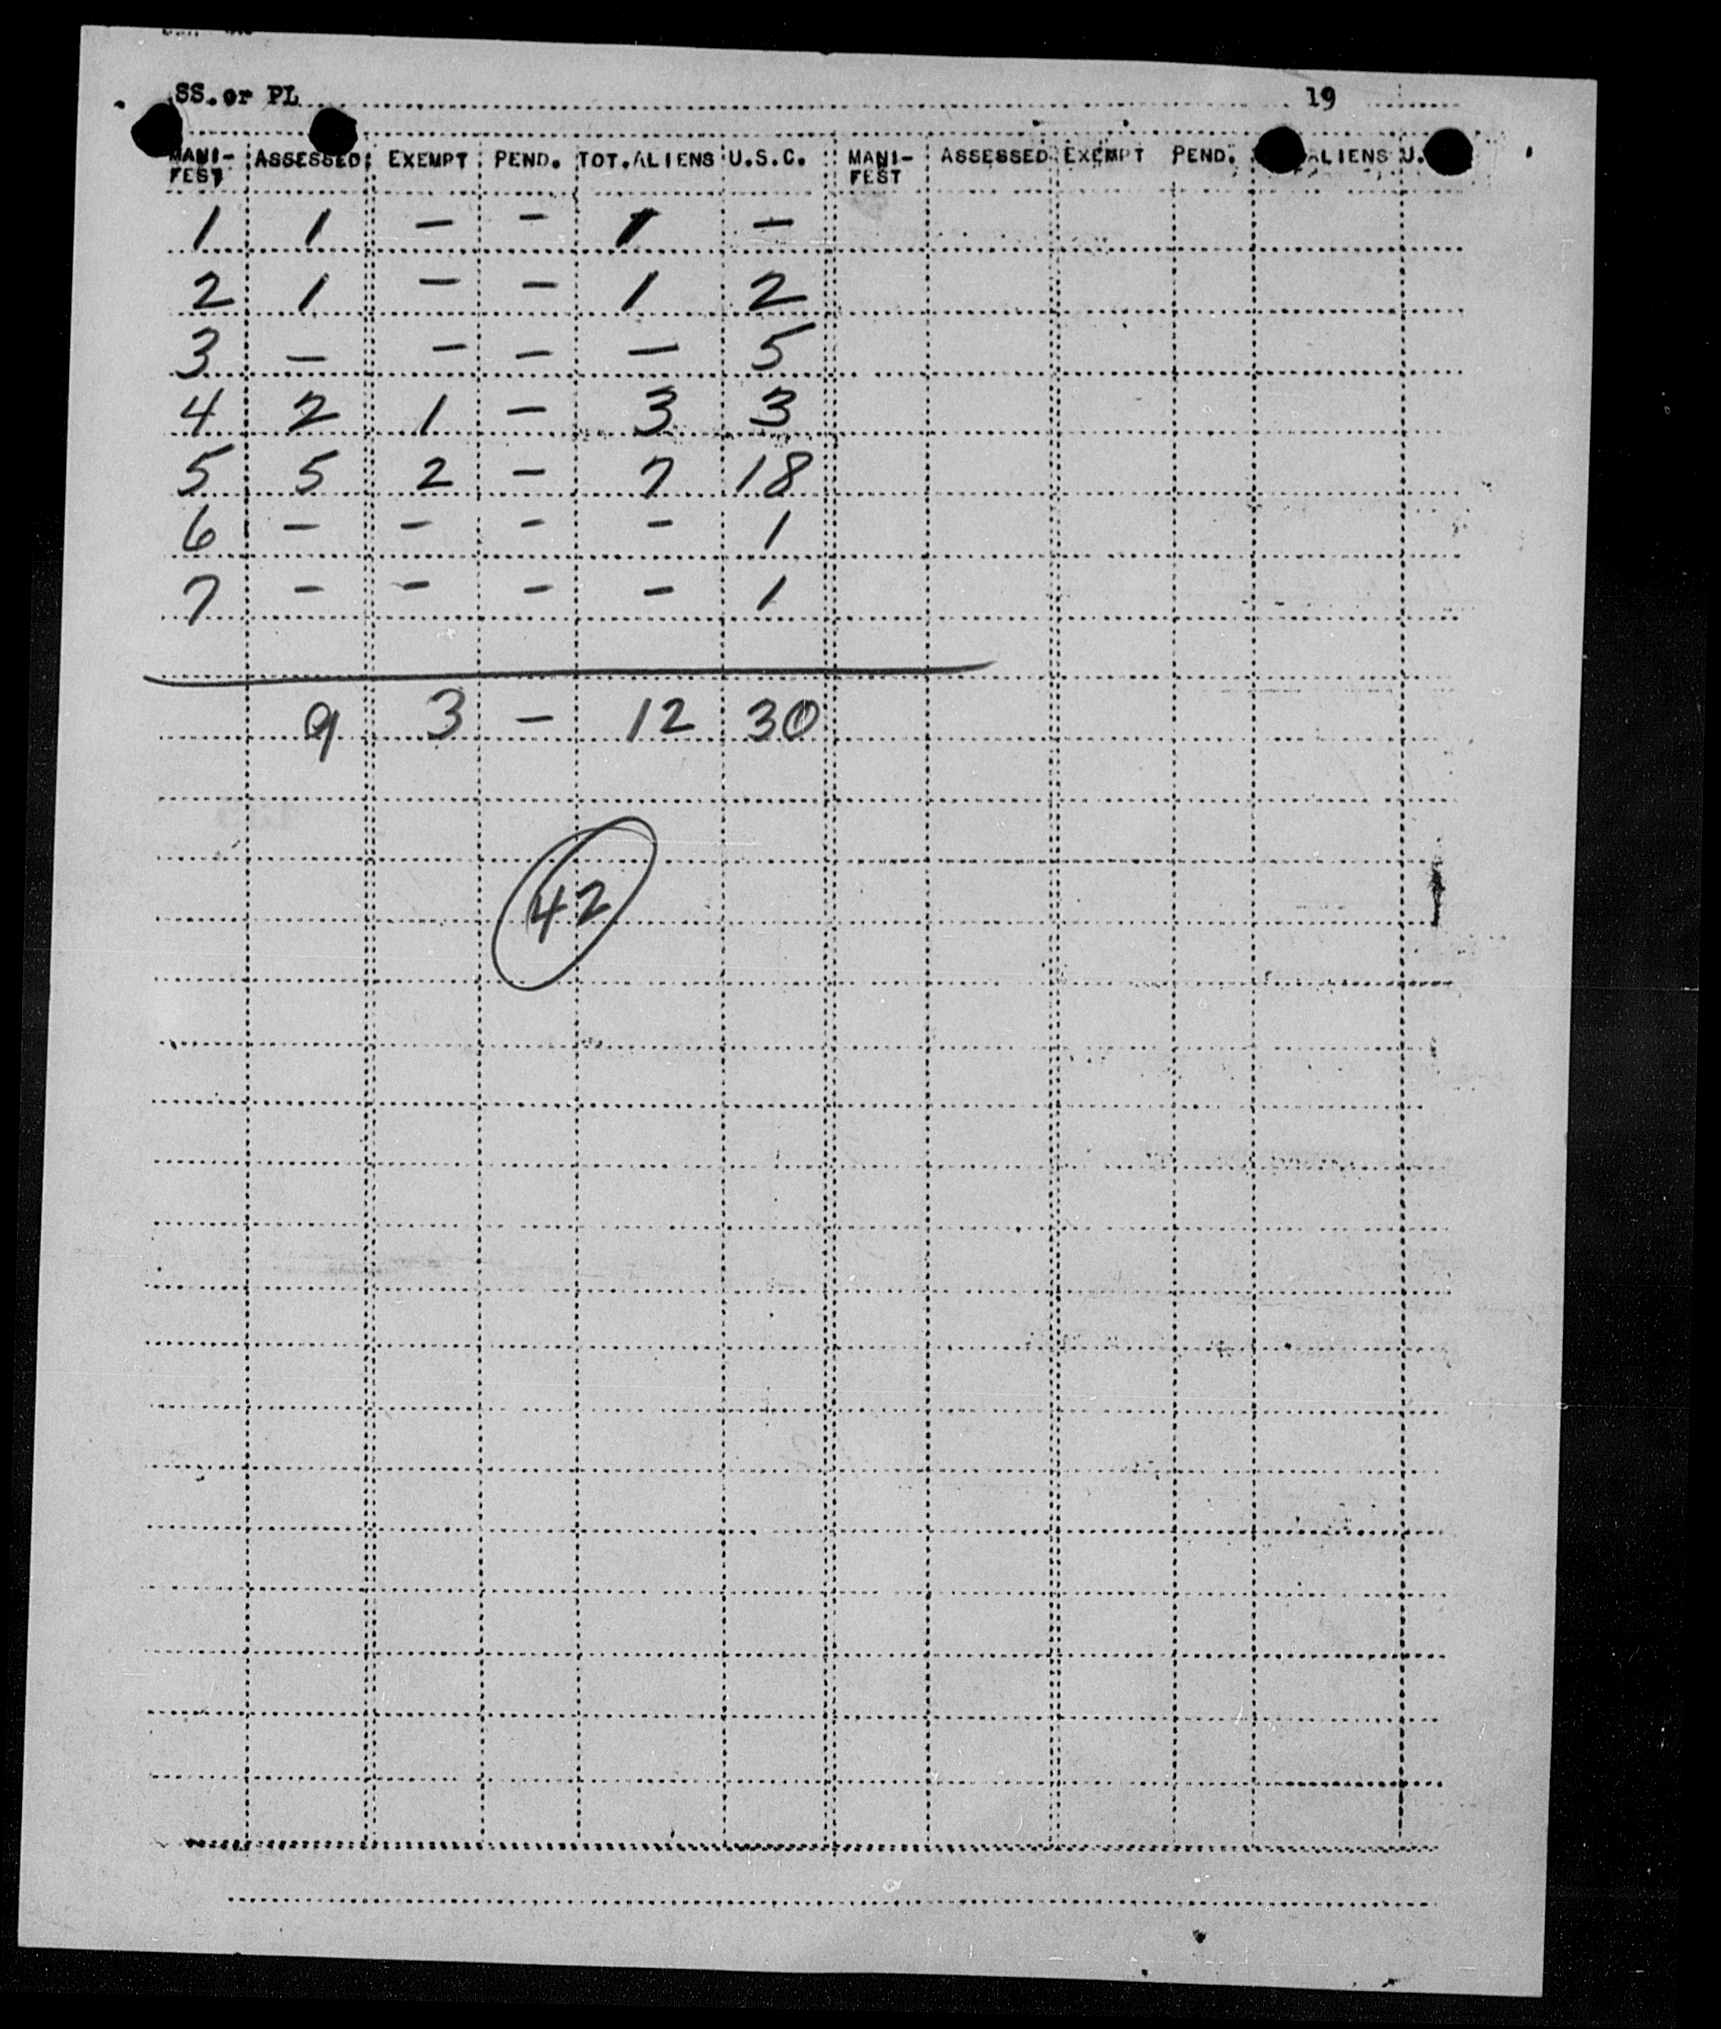 SS. or PL 19
MANI- ASSESSED EXEMPT PEND. TOT. ALIENS U.S.C. MANI- ASSESSED EXEMPT PEND. ALIENS U.
FEST FEST
1 1 - - 1 -
2 1 - - 1 2
3 - - - - 5
4 2 1 - 3 3
5 5 2 - 7 18
6 - - - - 1
7 - - - - 1
9 3 - 12 30
42